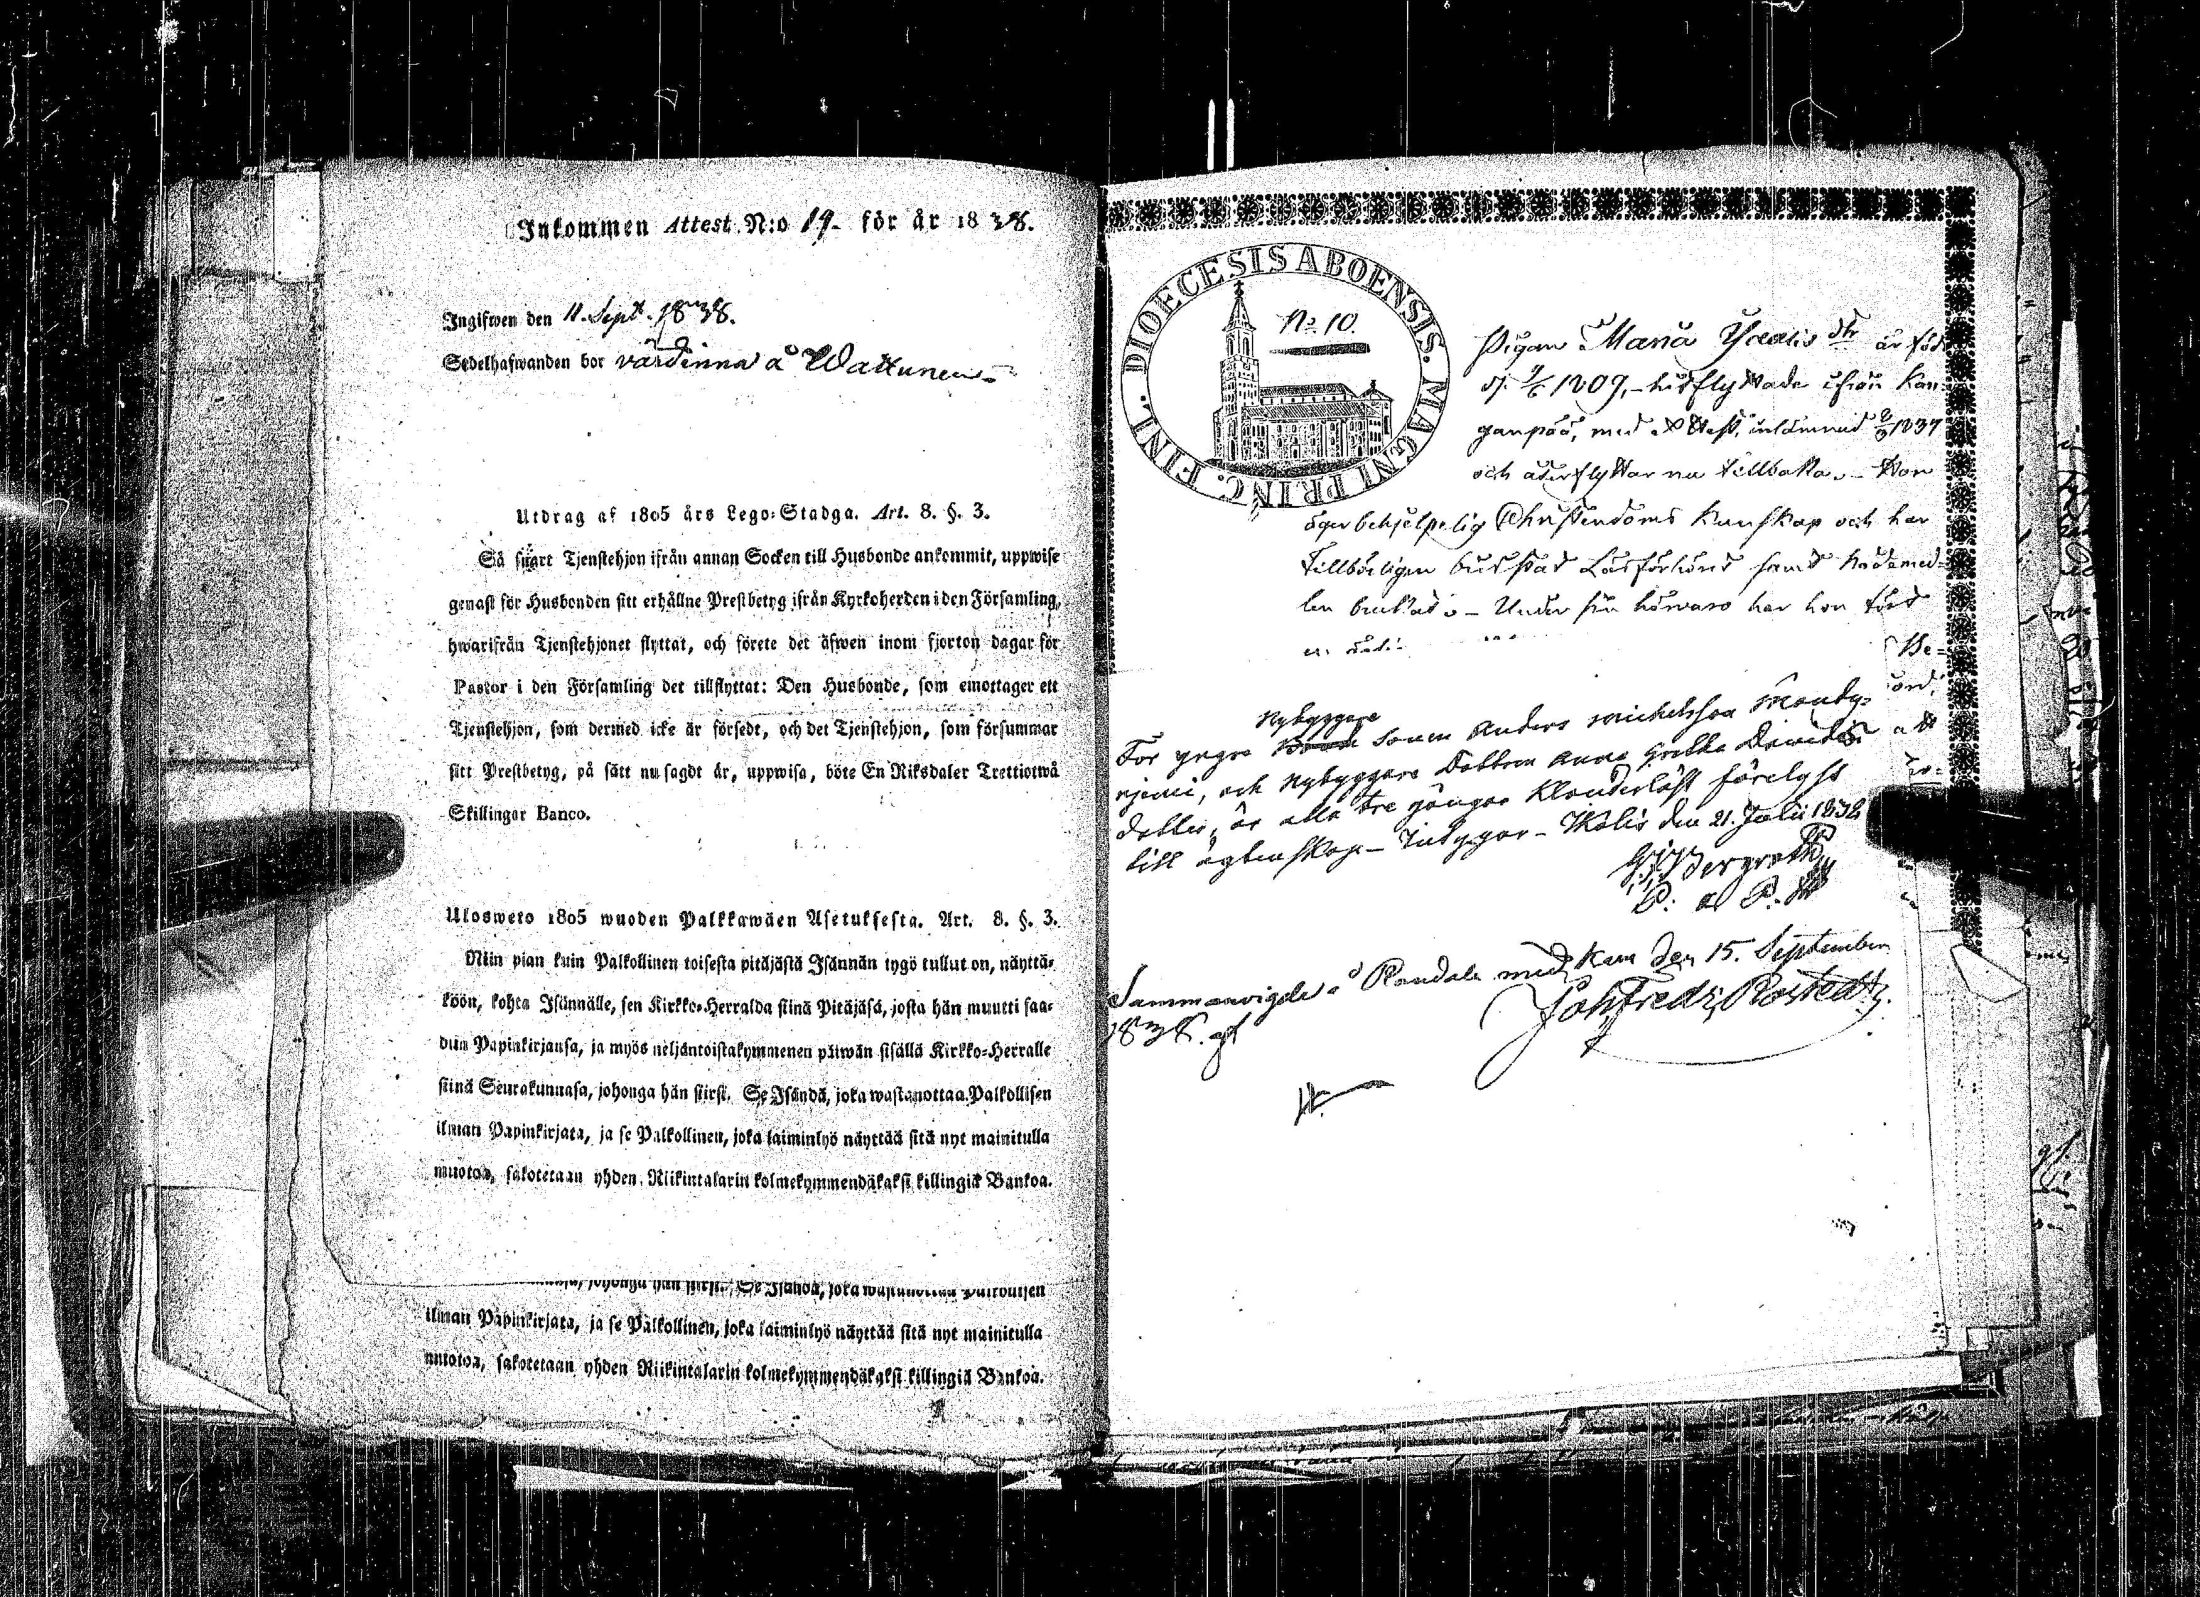 Inkommen Attest N:o 19. för år 1838.
Ingifwen den 11. Sept. 1838.
Sedelhafwanden bor värdinna å
Utdrag af 1805 års Lego-Stadga. Art. 8. §. 3.
Så snart Tjenstehjon ifrån annan Socken till Husbonde ankommit, uppwise
genast för Husbonden sitt erhållne Prestbetyg ifrån Kyrkoherden i den Församling,
hwarifrån Tjenstehjonet flyttat, och förete det äfwen inom fjorton dagar för
Pastor i den Församling det tillflyttat: Den Husbonde, som emottager ett
Tjenstehjon, som dermed icke är försedt, och det Tjenstehjon, som försummar
sitt Prestbetyg, på sätt nu sagdt är, uppwisa, böte En Riksdaler Trettiotwå
Skillingar Banco.
Ulosweto 1805 wuoden Palkkawäen Asetuksesta. Art. 8. §. 3.
Niin pian kuin Palkollinen toisesta pitäjästä Isännän tygö tullut on, näyttä-
köön, kohta Isännälle, sen Kirkko-Herralda siinä Pitäjäsä, josta hän muutti saa-
dun Papinkirjansa, ja myös neljäntoistakymmenen päiwän sisällä Kirkko-Herralle
siinä Seurakunnasa, johonga hän siirsi. Se Isändä, joka wastanottaa Palkollisen
ilman Papinkirjata, ja se Palkollinen, joka laiminlyö näyttää sitä nyt mainitulla
muotoa, sakotetaan yhden Riikintalarin kolmekymmendäkaksi killingiä Bankoa.
johonga hän siirsi. Se Isändä, joka wastanottaa Palkollisen
ilman Papinkirjata, ja se Palkollinen, joka laiminlyö näyttää sitä nyt mainitulla
muotoa, sakotetaan yhden Riikintalarin kolmekymmendäkaksi killingiä Bankoa.
DIOECESIS ABOENSIS. MAGNI PRINC. FINL.
No 10.
Pigan Maria dtr är föd
1809, hitflyttade ifrån Kan-
ganpää, med attest, inlämnad 1837
och återflyttar nu tillbaka. Hon
äger behjelpelig Christendoms kunskap och har
tillbörligen bevistat Läsförhörd samt Nådemed-
len brukat. Under sin härvaro har hon fört
en
Nybyggare
För yngre sonen Anders Michelsson Mandy-
njemi, och Nybyggare Dottren Anna Greta Davids
dotter, är alla tre gånger klanderlöst förelyst
till ägtenskap Intygar Ikalis den 21. Julii 1838
Bergroth
P. a P.
Sammanvigde å Randala med Kam den 15. September
1838. af Joh Fredr Rostedt.